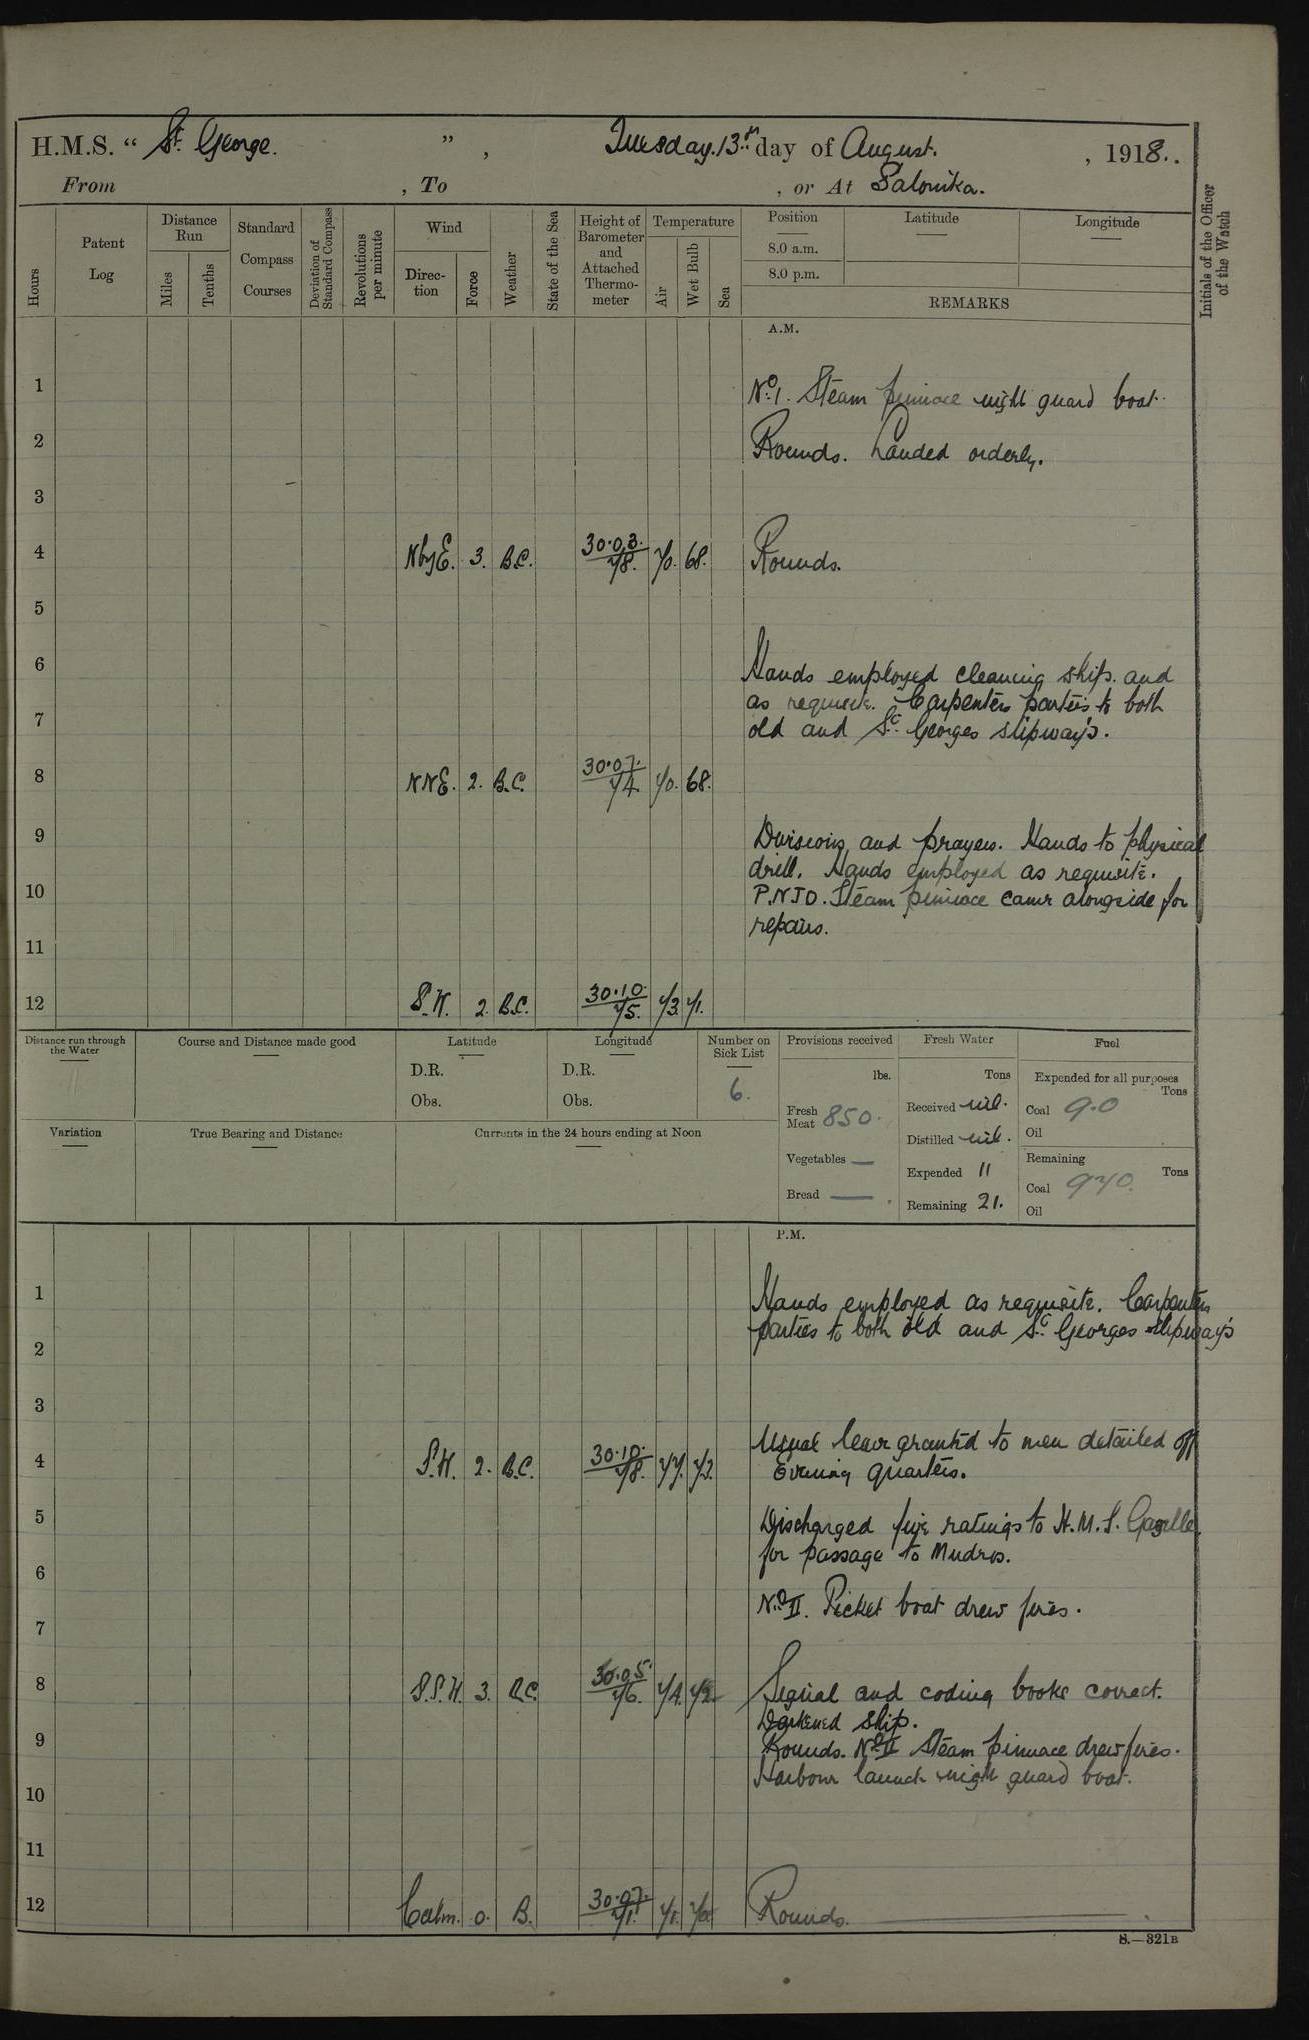 H.M.S. " St. George. ", Tuesday. 13th day of August. , 1918..
From , To , or At Salonika.
Hours
Patent Log
Distance Run
Miles
Tenths
Standard Compass Courses
Deviation of Standard Compass
Revolutions per minute
Wind
Direc-tion
Force
Weather
State of the Sea
Height of Barometer and Attached Thermo-meter
Temperature
Air
Wet Bulb
Sea
Position
Latitude
Longitude
8.0 a.m.
8.0 p.m.
REMARKS
Initials of the Officer of the Watch
A.M.
1
No. 1. Steam pinnace night guard boat.
2
Rounds. Landed orderly.
3
4 N by E. 3. B.C. 30.03. 78. 70. 68. Rounds.
5
6
Hands employed cleaning ship. and
as requisite. Carpenters parties to both
7
old and St. Georges slipways.
8 NNE. 2. B.C. 30.07. 74. 70. 68.
9
Divisions and prayers. Hands to physical
drill. Hands employed as requisite.
10
P.N.T.O. Steam pinnace came alongside for
repairs.
11
12 S.W. 2. B.C. 30.10. 75. 73. 71.
Distance run through the Water
Course and Distance made good
Latitude
D.R.
Obs.
Longitude
D.R.
Obs.
Number on Sick List
6.
Provisions received
lbs.
Fresh Meat 850.
Vegetables —
Bread —
Fresh Water
Tons
Received nil.
Distilled nil.
Expended 11
Remaining 21.
Fuel
Expended for all purposes
Tons
Coal 9.0
Oil
Remaining
Tons
Coal 970.
Oil
Variation
True Bearing and Distance
Currents in the 24 hours ending at Noon
P.M.
1
Hands employed as requisite. Carpenters
parties to both old and St. Georges slipways
2
3
Usual leave granted to men detailed off
4 S.W. 2. B.C. 30.10. 78. 77. 73.
Evening quarters.
5
Discharged five ratings to H.M.S. Gazelle
for passage to Mudros.
6
No. II. Picket boat drew fires.
7
8 S.S.W. 3. B.C. 30.05. 76. 74. 72 Signal and coding books correct.
Darkened ship.
9
Rounds. No. II Steam pinnace drew fires.
Harbour launch night guard boat.
10
11
12 Calm. 0. B. 30.07. 71. 71. Rounds.
S.—321B